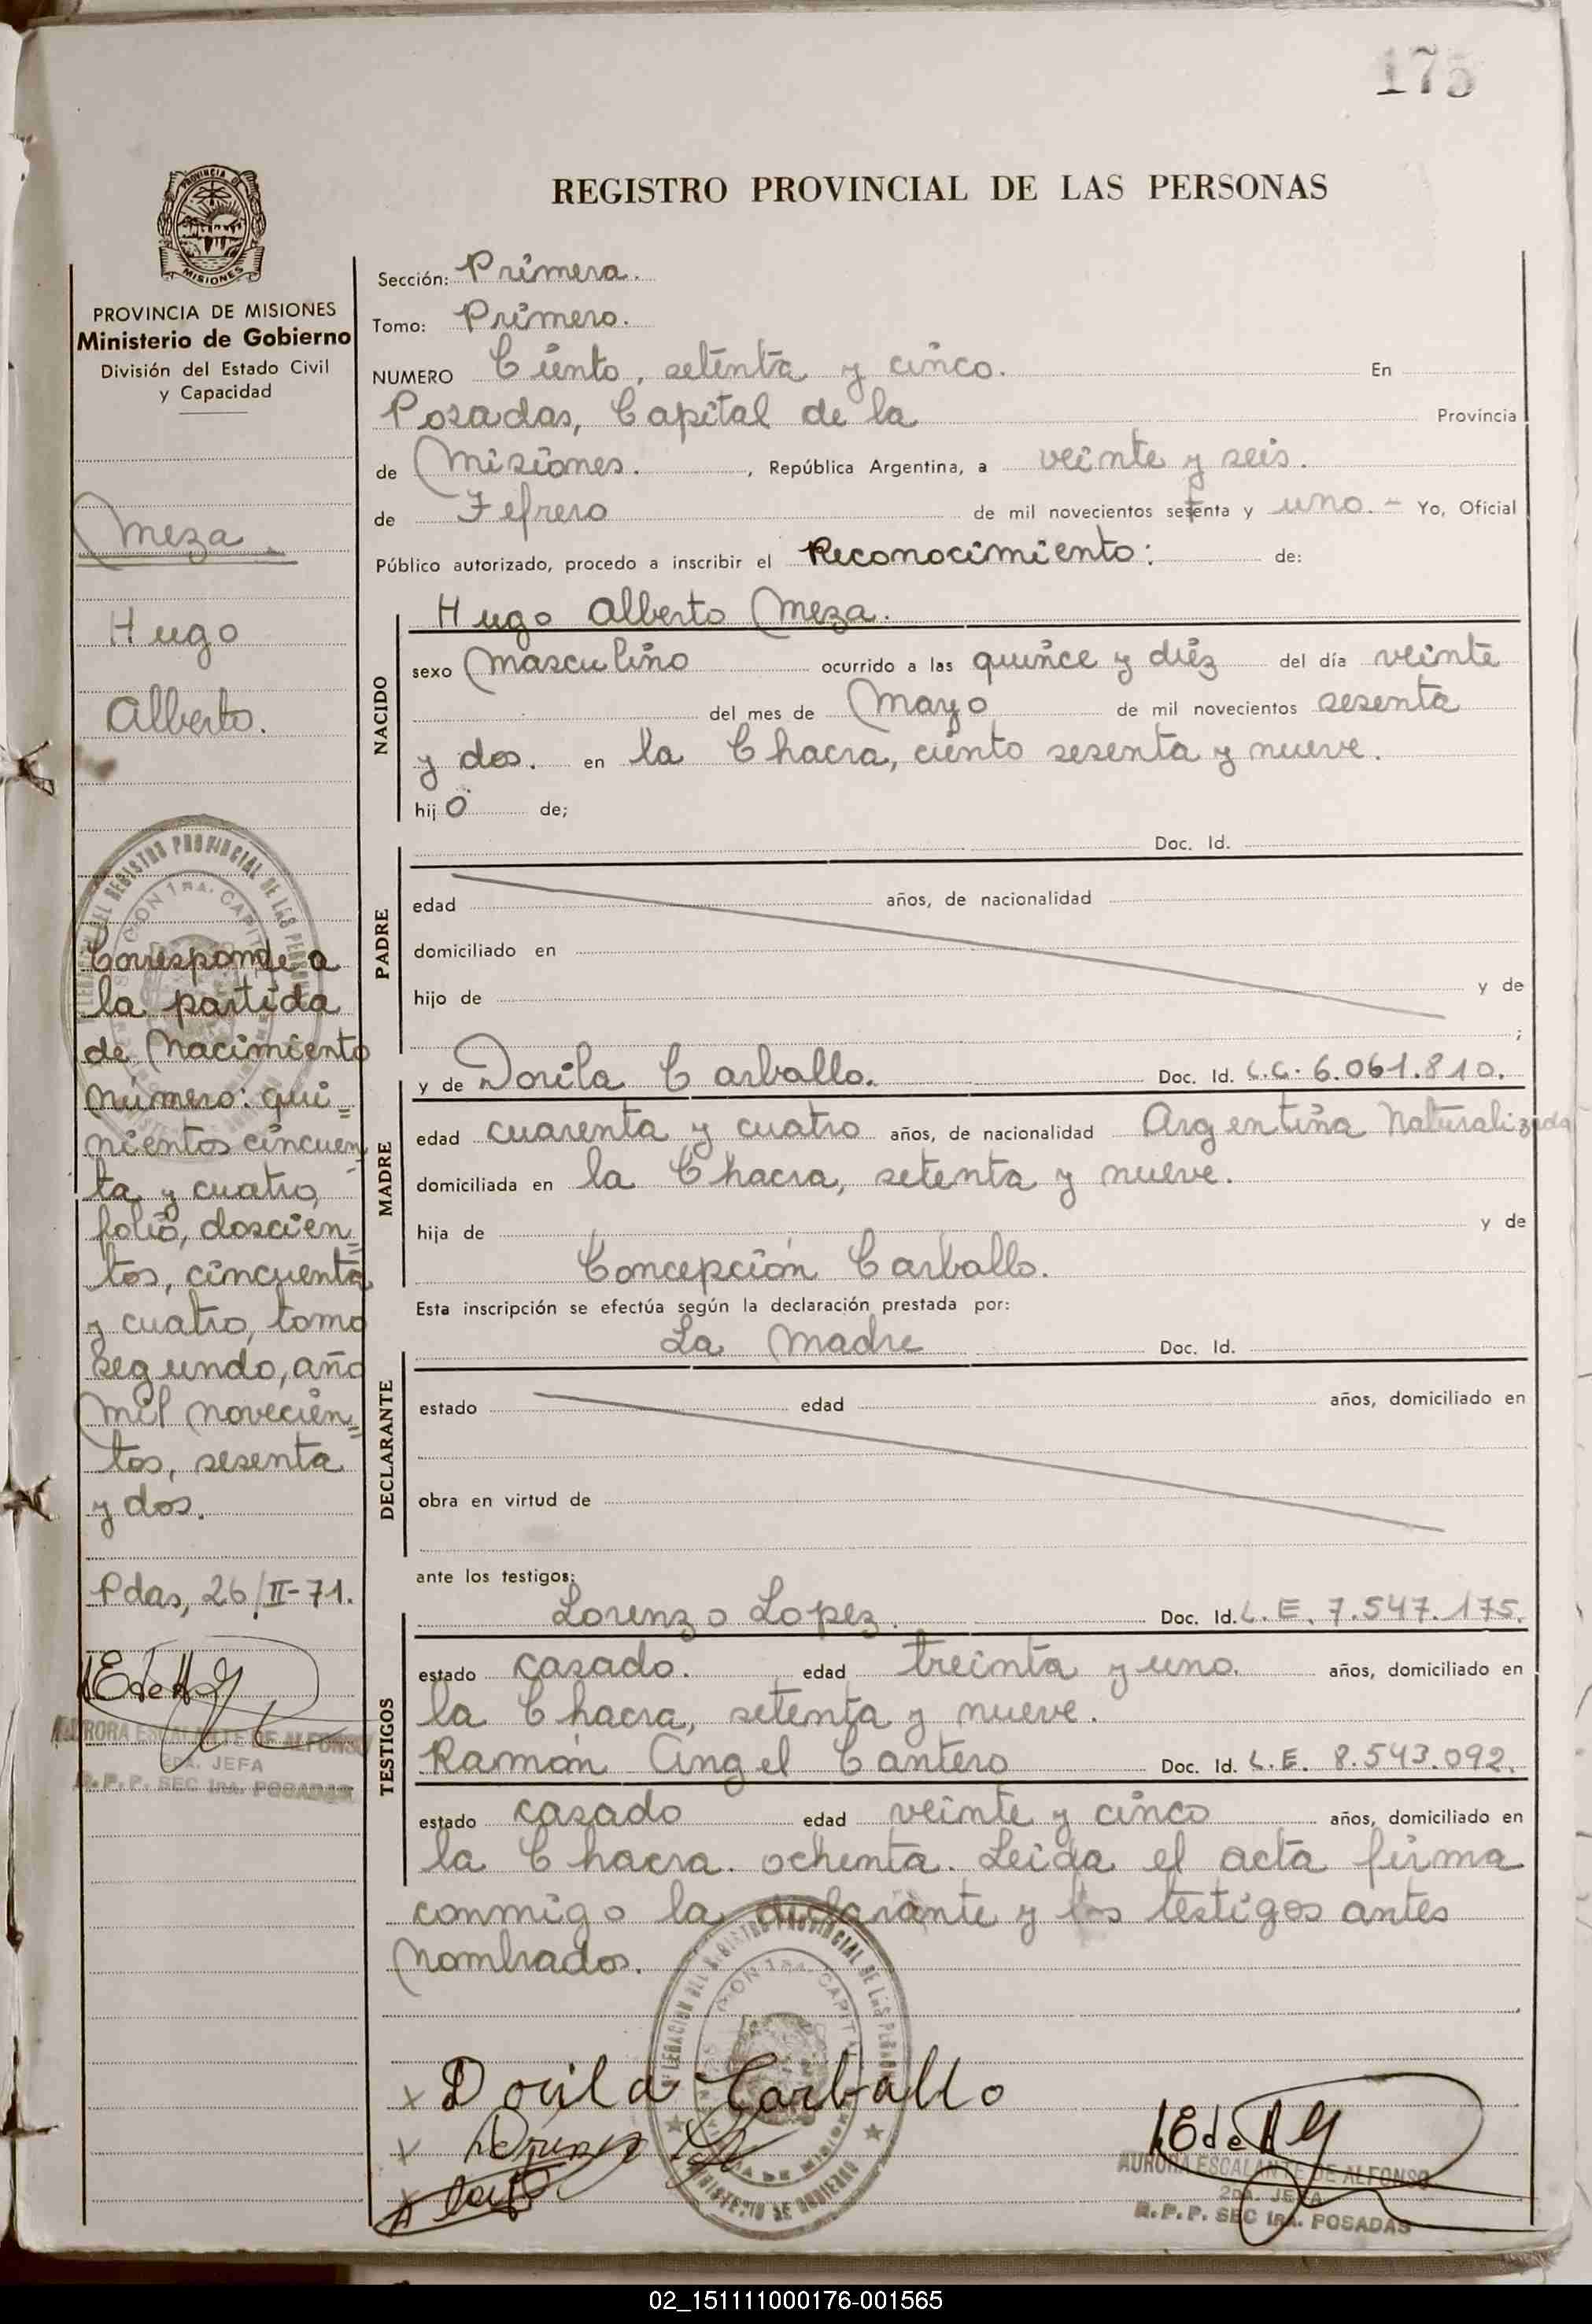 175
REGISTRO PROVINCIAL DE LAS PERSONAS
PROVINCIA DE MISIONES
Ministerio de Gobierno
División del Estado Civil
y Capacidad
Meza.
Hugo
Alberto.
Corresponde a
la partida
de Nacimiento
Número: qui=
nientos cincuen=
ta y cuatro,
folio, doscien=
tos, cincuenta
y cuatro, tomo
segundo, año
mil novecien=
tos, sesenta
y dos.
Pdas, 26/II-71.
AURORA ESCALANTE DE ALFONSO
2DA. JEFA
R.P.P. SEC 1RA. POSADAS
Sección: Primera.
Tomo: Primero.
NUMERO Ciento, setenta y cinco. En
Posadas, Capital de la Provincia
de Misiones. , República Argentina, a veinte y seis.
de Fefrero de mil novecientos setenta y uno.- Yo, Oficial
Público autorizado, procedo a inscribir el Reconocimiento: de:
NACIDO
Hugo Alberto Meza.
sexo Masculino ocurrido a las quince y diéz del día veinte
del mes de Mayo de mil novecientos sesenta
y dos. en la Chacra, ciento sesenta y nueve.
hijo de;
PADRE
Doc. Id.
edad años, de nacionalidad
domiciliado en
hijo de y de
;
MADRE
y de Dorila Carballo. Doc. Id. L.C. 6.061.810.
edad cuarenta y cuatro años, de nacionalidad Argentina Naturalizada
domiciliada en la Chacra, setenta y nueve.
hija de y de
Concepción Carballo.
Esta inscripción se efectúa según la declaración prestada por:
DECLARANTE
La Madre Doc. Id.
estado edad años, domiciliado en
obra en virtud de
ante los testigos:
TESTIGOS
Lorenzo Lopez. Doc. Id. L.E. 7.547.175.
estado casado. edad treinta y uno. años, domiciliado en
la Chacra, setenta y nueve.
Ramón Angel Cantero Doc. Id. L.E. 8.543.092.
estado casado edad veinte y cinco años, domiciliado en
la Chacra. ochenta. Leida el acta firma
conmigo la declarante y los testigos antes
Nombrados.
x Dorila Carballo
AURORA ESCALANTE DE ALFONSO
2DA. JEFA
R.P.P. SEC 1RA. POSADAS
02_151111000176-001565